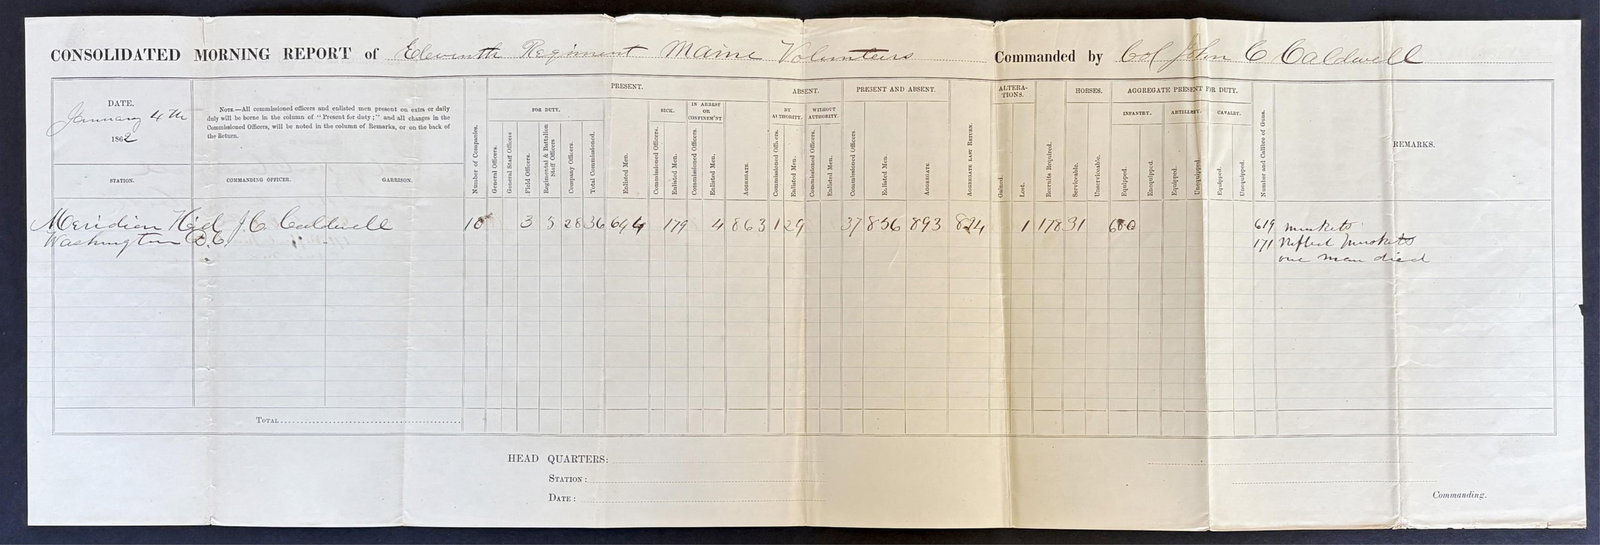 CONSOLIDATED MORNING REPORT of Eleventh Regiment Maine Volunteers Commanded by Col John C Caldwell
DATE.
January 4th
1862
NOTE.—All commissioned officers and enlisted men present on extra or daily
duly will be borne in the column of "Present for duty;" and all changes in the
Commissioned Officers, will be noted in the column of Remarks, or on the back of
the Return.
STATION.
COMMANDING OFFICER.
GARRISON.
Number of Companies.
PRESENT.
FOR DUTY.
General Officers.
General Staff Officers
Field Officers.
Regimental & Battalion
Staff Officers
Company Officers.
Total Commissioned.
Enlisted Men.
SICK.
Commissioned Officers.
Enlisted Men.
IN ARREST
OR
CONFINEM'NT
Commissioned Officers.
Enlisted Men.
AGGREGATE.
ABSENT.
BY
AUTHORITY.
Commissioned Officers.
Enlisted Men.
WITHOUT
AUTHORITY.
Commissioned Officers.
Enlisted Men.
PRESENT AND ABSENT.
Commissioned Officers.
Enlisted Men.
AGGREGATE.
AGGREGATE LAST RETURN.
ALTERA-
TIONS.
Gained.
Lost.
Recruits Required.
HORSES.
Serviceable.
Unserviceable.
AGGREGATE PRESENT FOR DUTY.
INFANTRY.
Equipped.
Unequipped.
ARTILLERY.
Equipped.
Unequipped.
CAVALRY.
Equipped.
Unequipped.
Number and Calibre of Guns.
REMARKS.
Meridien Hid J C Caldwell 10 3 5 28 36 644 179 4 863 1 29 37 856 893 894 1 178 31 680 619 muskets
Washington D.C. 171 Rifled muskets
one man died
TOTAL
HEAD QUARTERS:
STATION:
DATE:
Commanding.